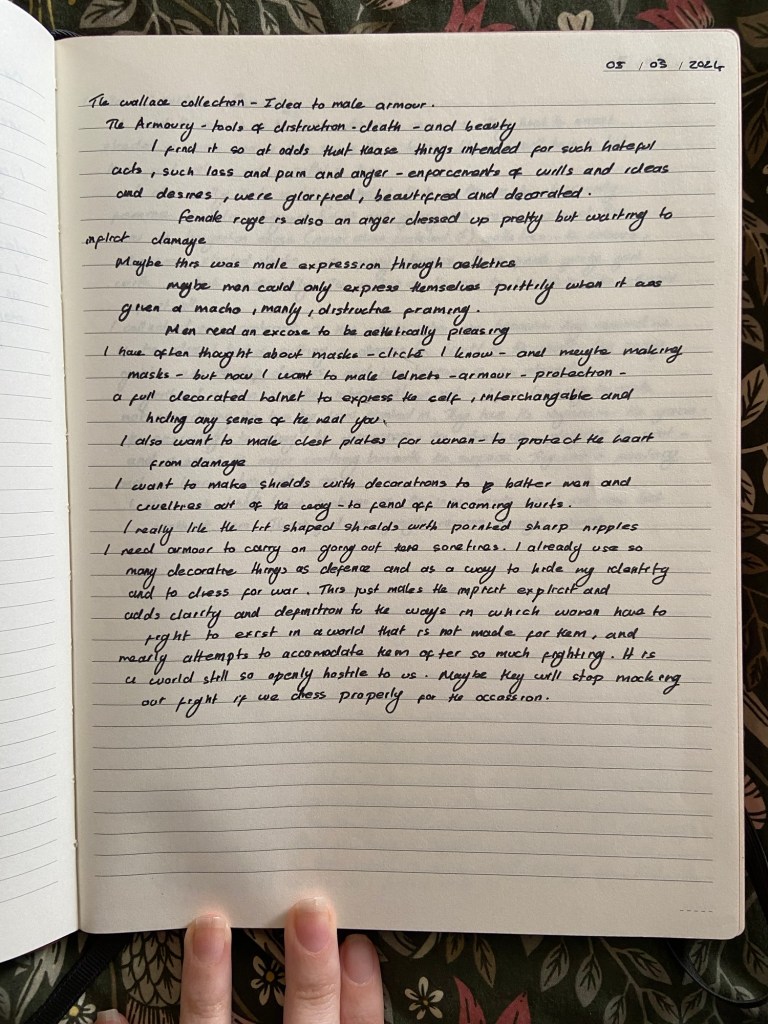 05 / 03 / 2024
The wallace collection - Idea to make armour.
The Armoury - tools of distruction - death - and beauty
I find it so at odds that these things intended for such hateful
acts, such loss and pain and anger - enforcements of wills and ideas
and desires, were glorified, beautified and decorated.
female rage is also an anger dressed up pretty but wanting to
inflict damage
Maybe this was male expression through asthetics
maybe men could only express themselves prittily when it was
given a macho, manly, distructive framing.
Men need an excuse to be asthetically pleasing
I have often thought about masks - cliché I know - and maybe making
masks - but now I want to make helmets - armour - protection -
a full decorated helmet to express the self, interchangable and
hiding any sense of the real you.
I also want to make chest plates for women - to protect the heart
from damage
I want to make shields with decorations to batter men and
cruelties out of the way - to fend off incoming hurts.
I really like the tit shaped shields with pointed sharp nipples
I need armour to carry on going out sometimes. I already use so
many decorative things as defence and as a way to hide my identity
and to dress for war. This just makes the implicit explicit and
adds clarity and definition to the ways in which women have to
fight to exist in a world that is not made for them, and
nearly attempts to accomodate them after so much fighting. It is
a world still so openly hostile to us. Maybe they will stop mocking
our fight if we dress properly for the occassion.